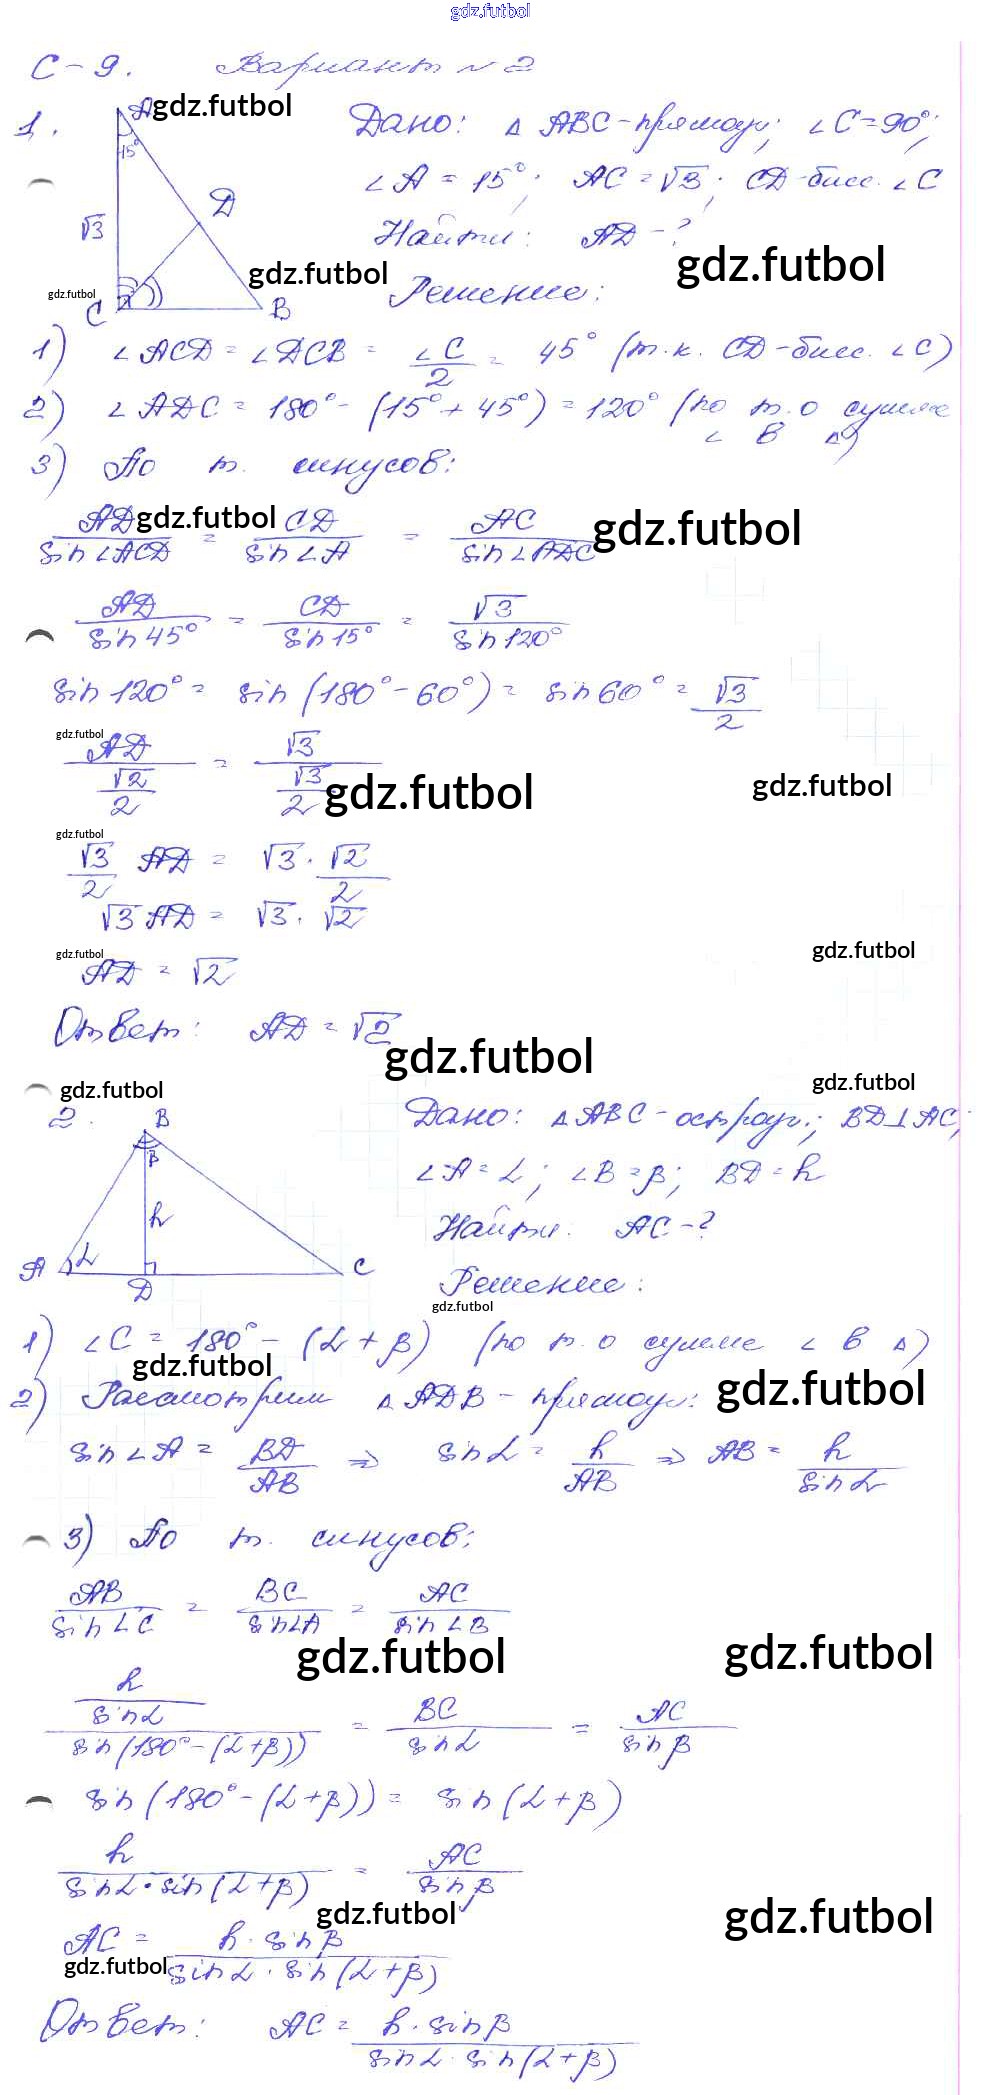 gdz.futbol
С-9. Вариант №2
1. A gdz.futbol Дано: △ ABC-прямоуг; ∠C=90°;
15° ∠A = 15°; AC=√3; CD-бисс. ∠C
√3 D Найти: AD-?
gdz.futbol gdz.futbol
gdz.futbol C B Решение:
1) ∠ACD = ∠DCB = ∠C/2 = 45° (т.к. CD-бисс. ∠C)
2) ∠ADC = 180° - (15° + 45°) = 120° (по т. о сумме
∠ в △)
3) По т. синусов:
AD/sin∠ACD = CD/sin∠A = AC/sin∠ADC
gdz.futbol gdz.futbol
AD/sin45° = CD/sin15° = √3/sin120°
sin120° = sin(180°-60°) = sin60° = √3/2
gdz.futbol
AD/(√2/2) = √3/(√3/2)
gdz.futbol gdz.futbol
gdz.futbol
√3/2 AD = √3 · √2/2
√3 AD = √3 · √2
gdz.futbol gdz.futbol
AD = √2
Ответ: AD = √2
gdz.futbol
gdz.futbol gdz.futbol
2. B Дано: △ABC-остроуг.; BD⊥AC;
β ∠A=α; ∠B=β; BD=h
h Найти: AC-?
A α D C Решение:
gdz.futbol
1) ∠C = 180° - (α+β) (по т. о сумме ∠ в △)
gdz.futbol gdz.futbol
2) Рассмотрим △ADB - прямоуг:
sin∠A = BD/AB ⇒ sinα = h/AB ⇒ AB = h/sinα
3) По т. синусов:
AB/sin∠C = BC/sin∠A = AC/sin∠B
gdz.futbol gdz.futbol
(h/sinα)/sin(180°-(α+β)) = BC/sinα = AC/sinβ
sin(180°-(α+β)) = sin(α+β)
h/(sinα·sin(α+β)) = AC/sinβ
gdz.futbol gdz.futbol
AC = h·sinβ/(sinα·sin(α+β))
gdz.futbol
Ответ: AC = h·sinβ/(sinα·sin(α+β))